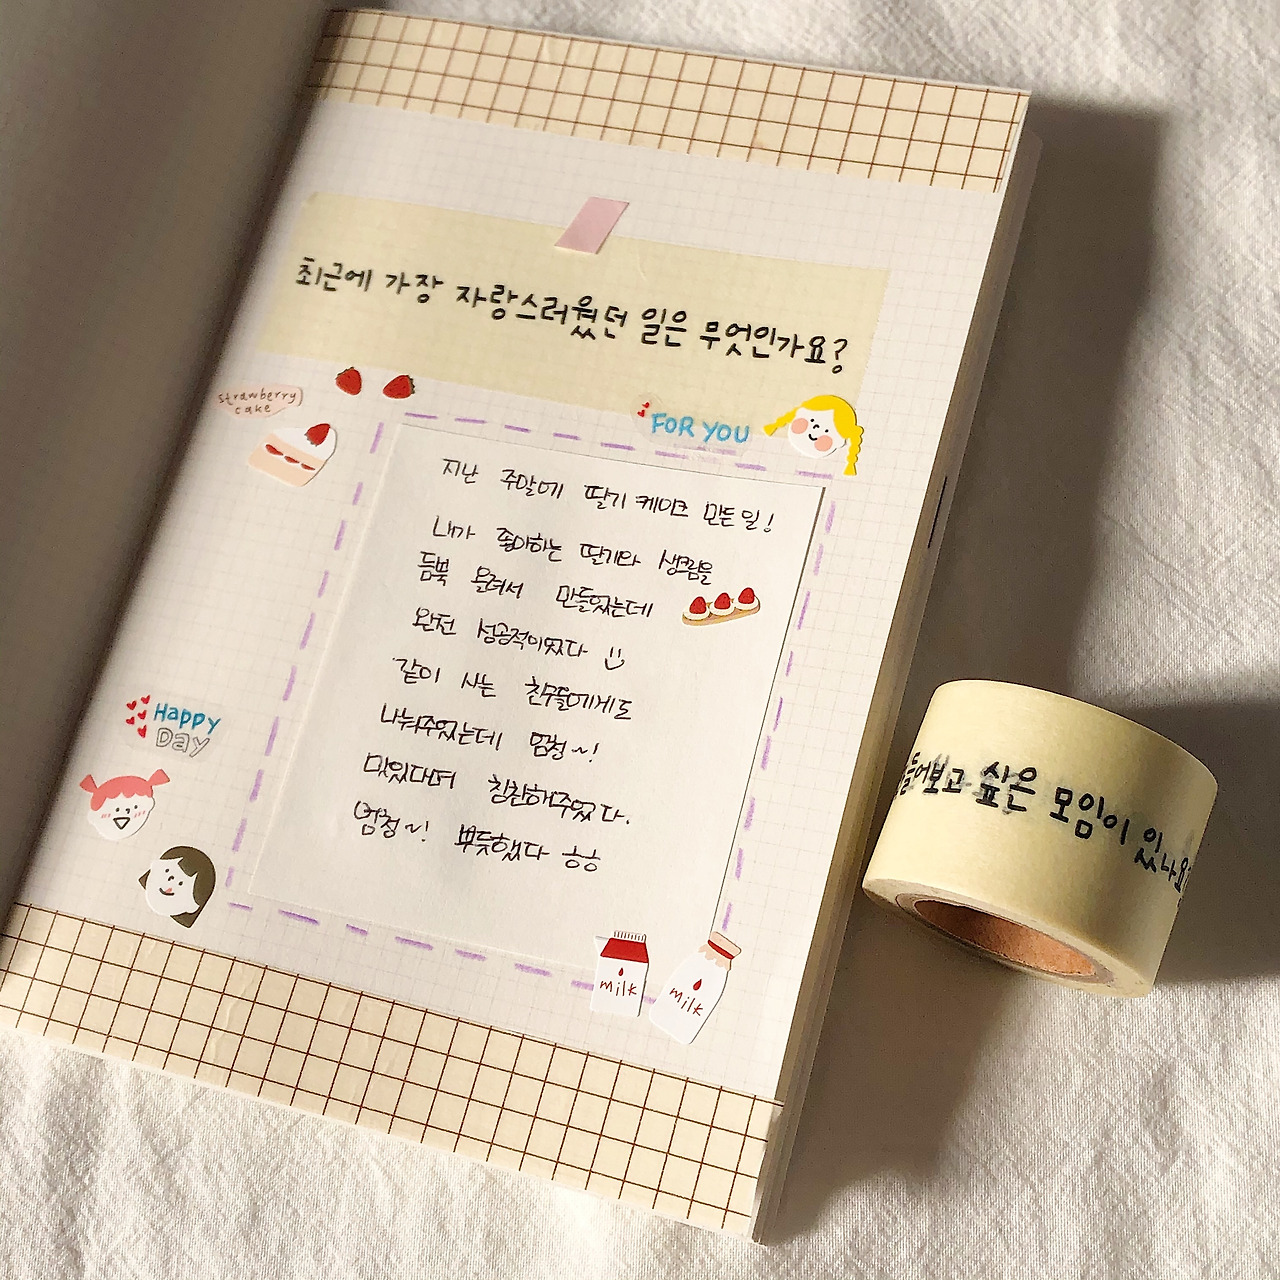 최근에 가장 자랑스러웠던 일은 무엇인가요?
strawberry
cake
FOR YOU
지난 주말에 딸기 케이크 만든 일!
내가 좋아하는 딸기와 생크림을
듬뿍 올려서 만들었는데
완전 성공적이었다
같이 사는 친구들에게도
나눠주었는데 엄청~!
맛있다며 칭찬해주었다.
엄청~! 뿌듯했다 ㅎㅎ
Happy
Day
milk
milk
들어보고 싶은 모임이 있나요